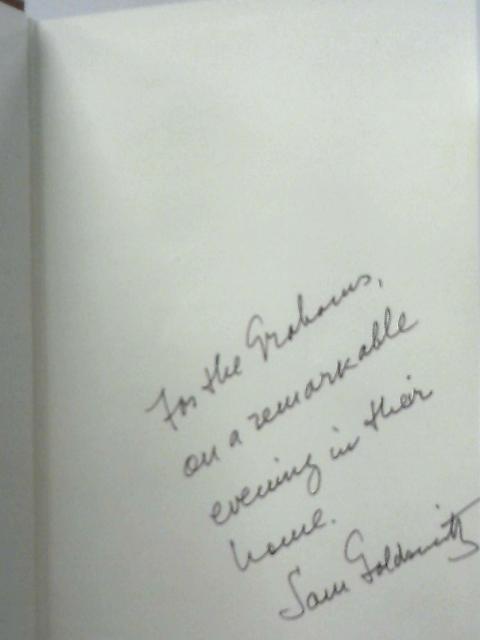 For the Grahams,
on a remarkable
evening in their
home.
Sam Goldsmith